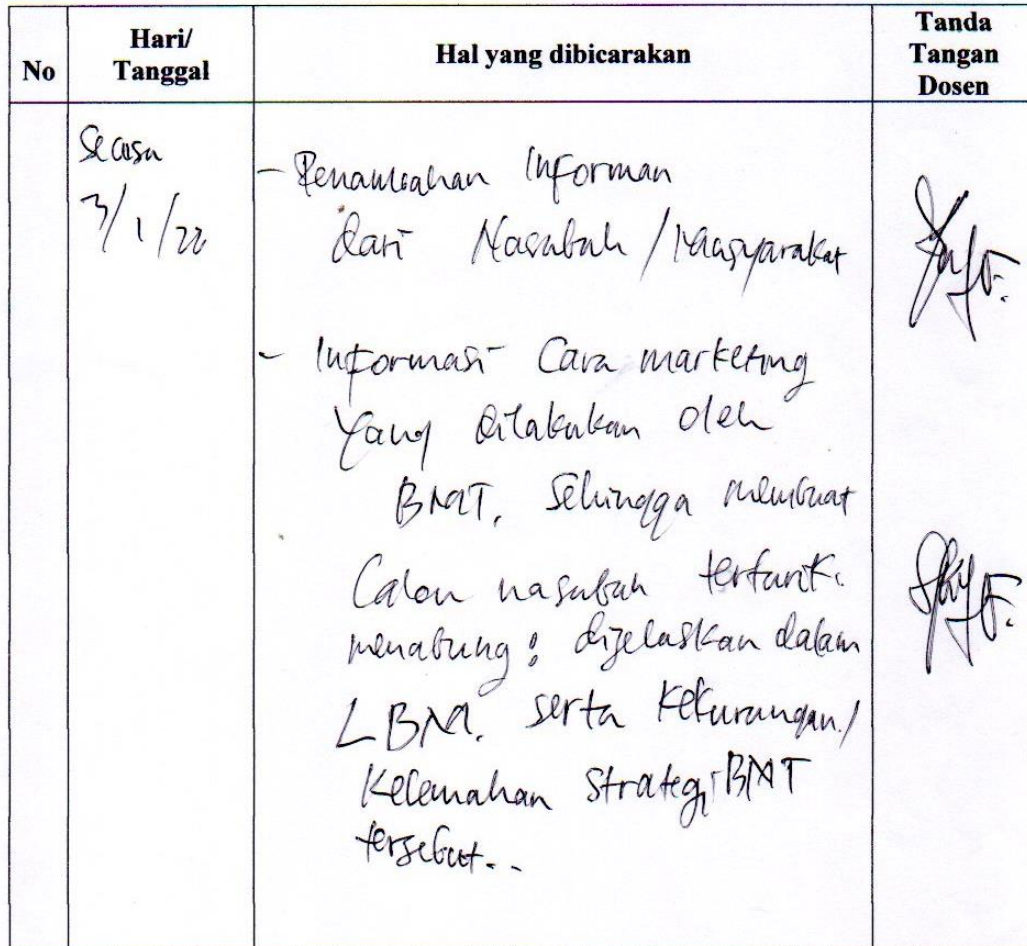 No
Hari/
Tanggal
Hal yang dibicarakan
Tanda
Tangan
Dosen
Selasa
3/1/22
- Penambahan Informan
dari Nasabah / Masyarakat
- Informasi Cara marketing
yang dilakukan oleh
BMT, Sehingga membuat
Calon nasabah tertarik
menabung : dijelaskan dalam
LBM. serta Kekurangan/
Kelemahan Strategi BMT
tersebut..